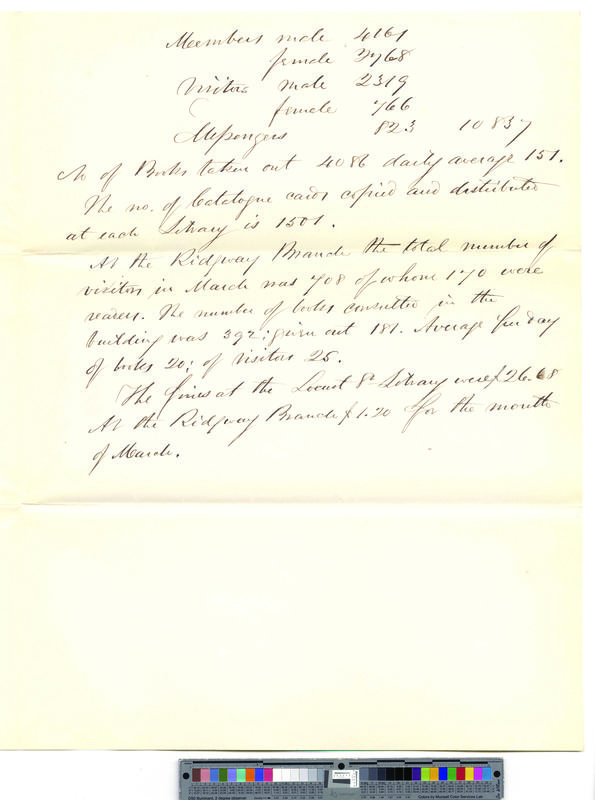 Members male 4161
female 2768
Visitors male 2319
female 766
Messengers 823 10837
No of Books taken out 4086 daily average 151.
The no. of Catalogue cards copied and distributed
at each Library is 1501.
At the Ridgway Branch the total number of
visitors in March was 708 of whom 170 were
readers. The number of books consulted in the
building was 392; given out 181. Average per day
of books 20; of visitors 25.
The fines at the Locust St Library were $26.68
At the Ridgway Branch $1.20 for the month
of March.